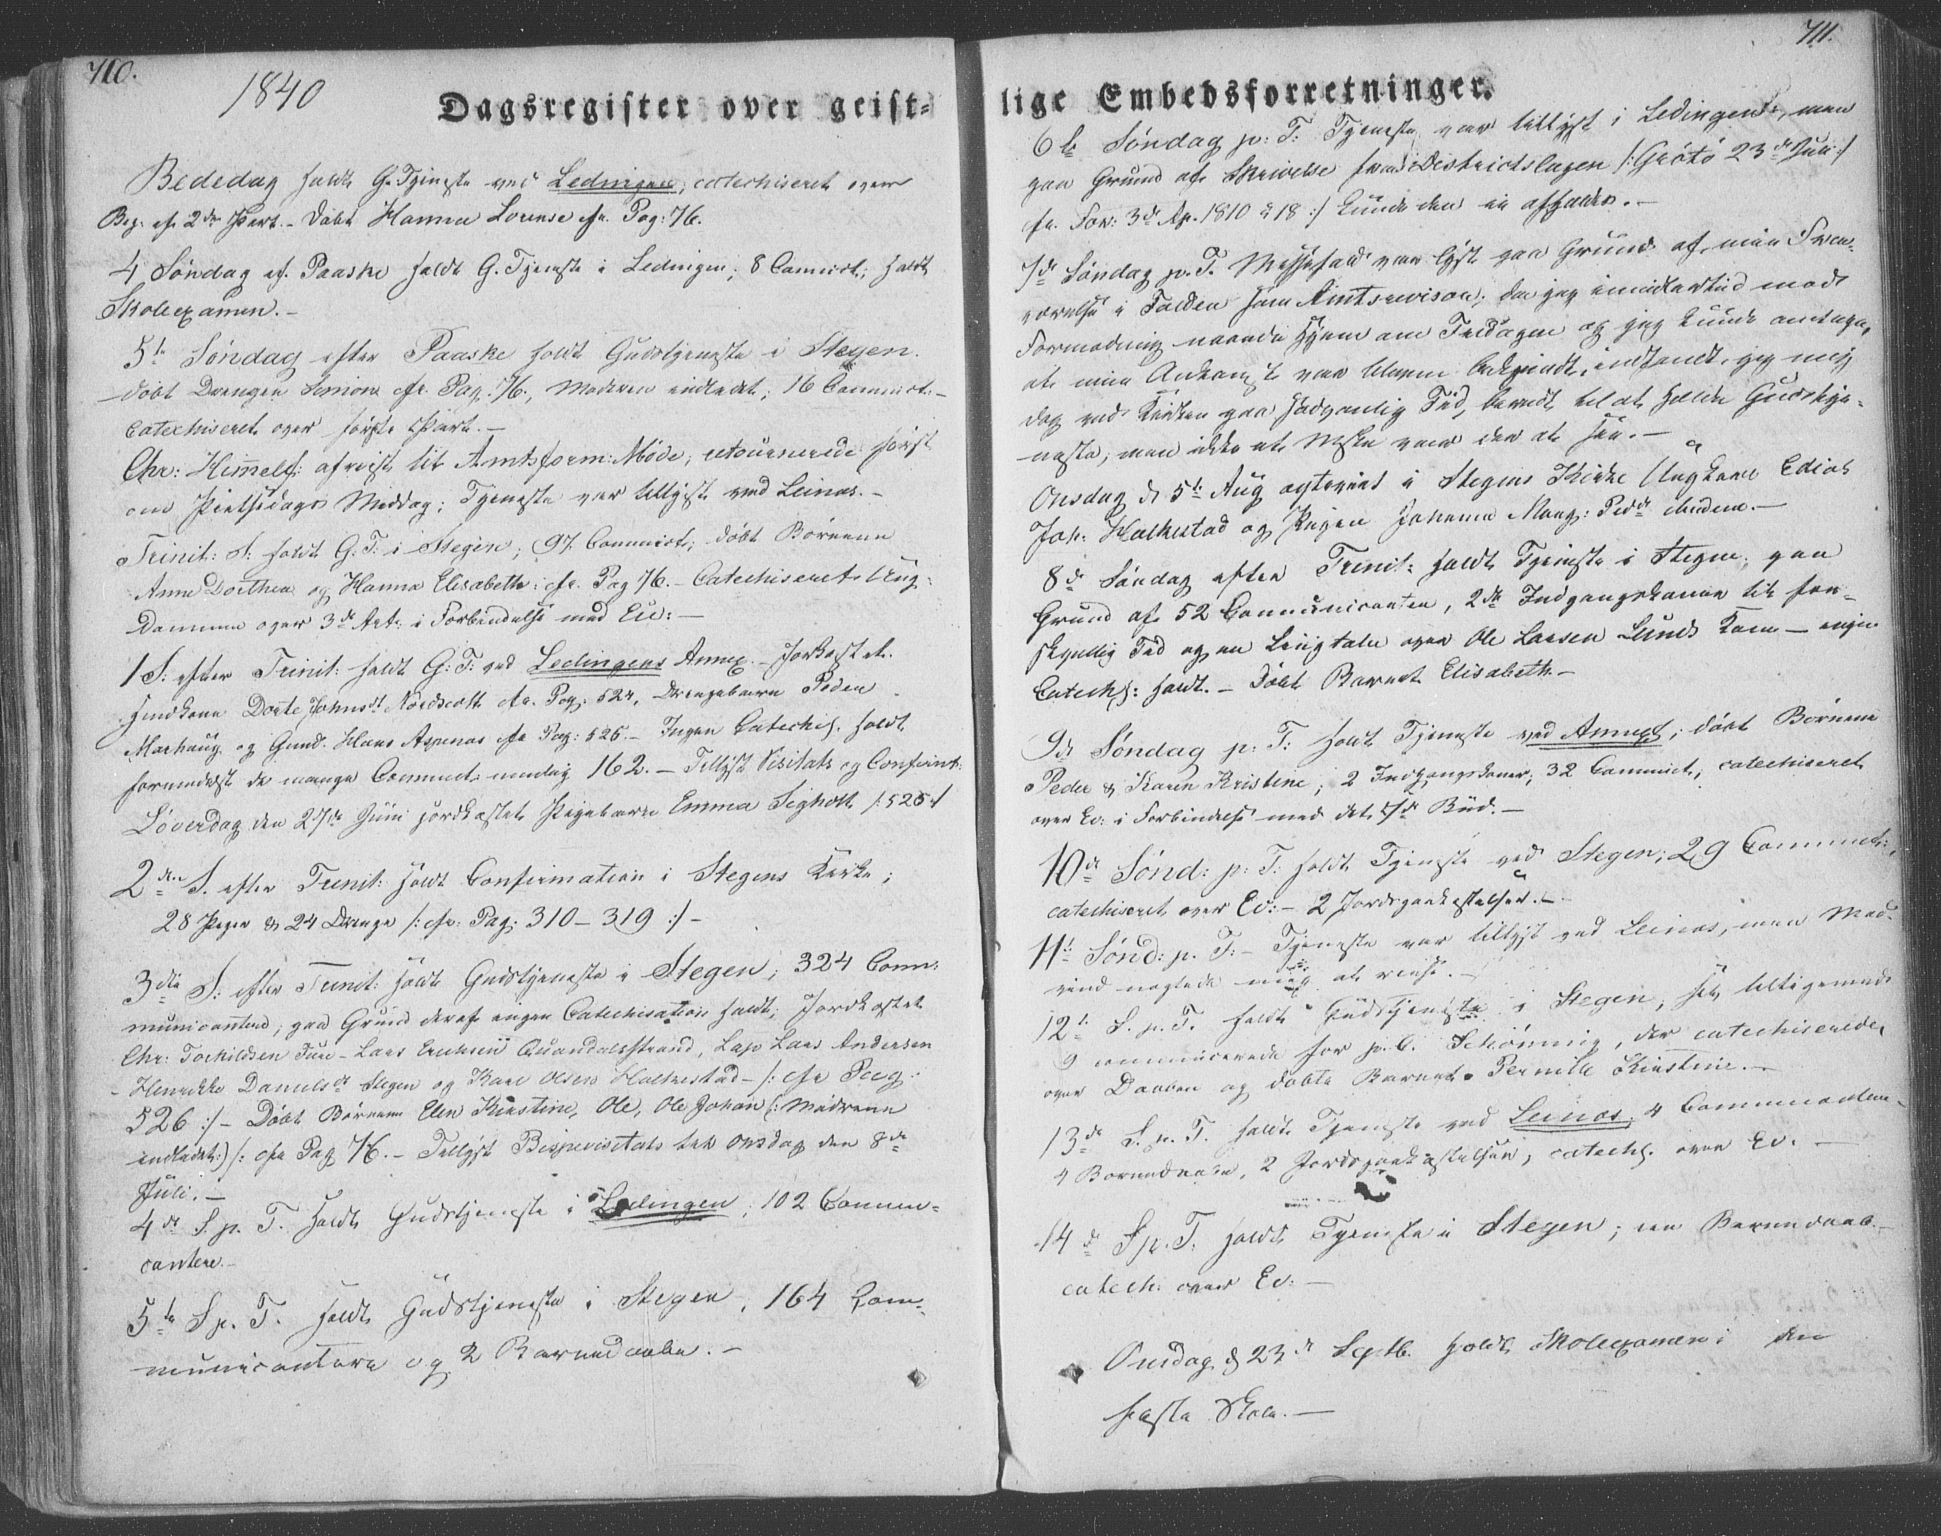 710.
1840
Dagsregister over geist-
Bededag holdt G. Tjeneste ved Ledingen, catechiseret over
Beg. af 2den Part. - Døbt Hanna Lorense cfr. Pag: 76.
4 Søndag ef. Paaske holdt G. Tjeneste i Ledingen; 8 Communict; holdt
Skoleexamen. -
5te Søndag efter Paaske holdt Gudstjeneste i Stegen.
døbt Drengen Simon cfr. Pag. 76, Moderen indledet; 16 Communict. -
Catechiseret over første Part. -
Chr: Himmelf: afreist til Amtsform: Møde; retournerede først
om Pintsedags Middag; Tjeneste var tillyst ved Leines. -
Trinit: S: holdt G. T: i Stegen; 97 Communict; døbt Børnene
Anne Dorthea og Hanna Elisabeth: cfr. Pag 76. - Catechiseret Ung-
dommen over 3de Art. i Forbindelse med Ev: -
1 S: efter Trinit: holdt G: T: ved Ledingens Annex. - Jordkastet
Huuskone Dorte Johnsdt Nordscott cfr. Pag: 524, Drengebarn Peder
Marhaug og Gmd. Hans Aspenes cfr Pag: 525. - Ingen Catechis. holdt
formedelst de mange Communict. nemlig 162. - Tillyst Visitats og Confirmt:
Løverdag den 27de Juni jordkastet Pigebarn Emma Sigholt /:525:/
2den S. efter Trinit: holdt Confirmation i Stegens Kirke;
28 Piger & 24 Drenge /: cfr. Pag: 310 - 319 :/ -
3die S: efter Trinit: holdt Gudstjeneste i Stegen; 324 Com-
municanter, paa Grund deraf ingen Catechisation holdt; Jordkastet
Chr: Torkildsen Fure - Lars Eriksen Qvandalsstrand, Lap Lars Andersen
- Henrikke Danielsdt Stegen og Karl Olsen Holkestad - /: cfr Pag:
526 :/ - Døbt Børnene Elen Kirstine, Ole, Ole Johan (: Mødrene
indledet :) /: cfr Pag 76. - Tillyst Bispevisitats til Onsdag den 8de
Juli. -
4de S. p. T. holdt Gudstjeneste i Ledingen; 102 Commun-
cantere. -
5te S p. T. holdt Gudstjeneste i Stegen, 164 Com-
municantere og 2 Barnedaabe. -
711.
lige Embedsforretninger.
6te Søndag p: T: Tjeneste var tillyst i Ledingen, men
paa Grund af Skrivelse fra Districtslægen /: Grøtø 23de Juli :/
cfr. For: 3de Ap. 1810 § 18 :/ kunde den ei afholdes. -
7de Søndag p. T. Messefald var lyst paa Grund af min Fra-
værelse i Folden som Amtsrevisor; da jeg imidlertid mod
Formodning naaede Hjem om Fredagen og jeg kunde antage,
at min Ankomst var bleven bekjendt, indfandt jeg mig
dog ved Kirken paa sædvanlig Tid, beredt til at holde Gudstje-
neste; men ikke et Mske var der at see. -
Onsdag d. 5te Aug ægteviet i Stegens Kirke Ungkarl Edias
Joh: Holkestad og Pigen Johanna Marg: Pedd. ibidem. -
8de Søndag efter Trinit: holdt Tjeneste i Stegen; paa
Grund af 52 Communicanter, 2de Indgangskoner til for-
skjellig Tid og en Liigtale over Ole Larsen Lunds Kone - ingen
Catechs: holdt. - Døbt Barnet Elisabeth. -
9de Søndag p. T: holdt Tjeneste ved Annext; døbt Børnene
Peder & Karen Kristine; 2 Indgangskoner; 32 Communict, catechiseret
over Ev: i Forbindelse med det 7de Bud. -
10de Sønd: p: T: holdt Tjeneste ved Stegen; 29 Communict:,
catechiseret over Ev: - 2 Jordspaakastelser. -
11te Sønd: p. T: - Tjeneste var tillyst ved Leines, men Mod-
vind nægtede mig at reise. -
12te S. p. T. holdt Gudstjeneste i Stegen, selv tilligemed
9 communicerede for p. c. Schønning, der catechiserede
over Daaben og døbte Barnet Pernille Kirstine. -
13de S. p. T. holdt Tjeneste ved Leines, 4 Communicanter,
4 Barnedaabe, 2 Jordspaakastelser, catechs. over Ev. -
14de S p. T. holdt Tjeneste i Stegen; en Barnedaab. -
catech: over Ev: -
Onsdag d 23de Septb. holdt Skoleexamen i den
faste Skole. -